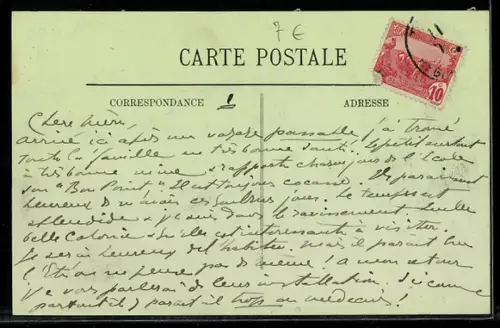 7 €
CARTE POSTALE
10
CORRESPONDANCE 1
ADRESSE
Chère Mère,
arrivé ici après un voyage passable j'ai trouvé
toute la famille en très bonne santé. Le petit surtout
a très bonne mine & rapporte chaque jour de l'école
son "Bon Point". Il est toujours cocasse. Ils paraissent
heureux de m'avoir ces quelques jours. Le temps est
splendide & je suis dans le ravissement. Quelle
belle Colonie & qu'elle est intéressante à visiter.
Je serais heureux de l'habiter, mais il paraît que
l'Etat ne pense pas de même! A mon retour
je vous parlerai de leur installation. Ici comme
partout il y paraît il trop de médecins!